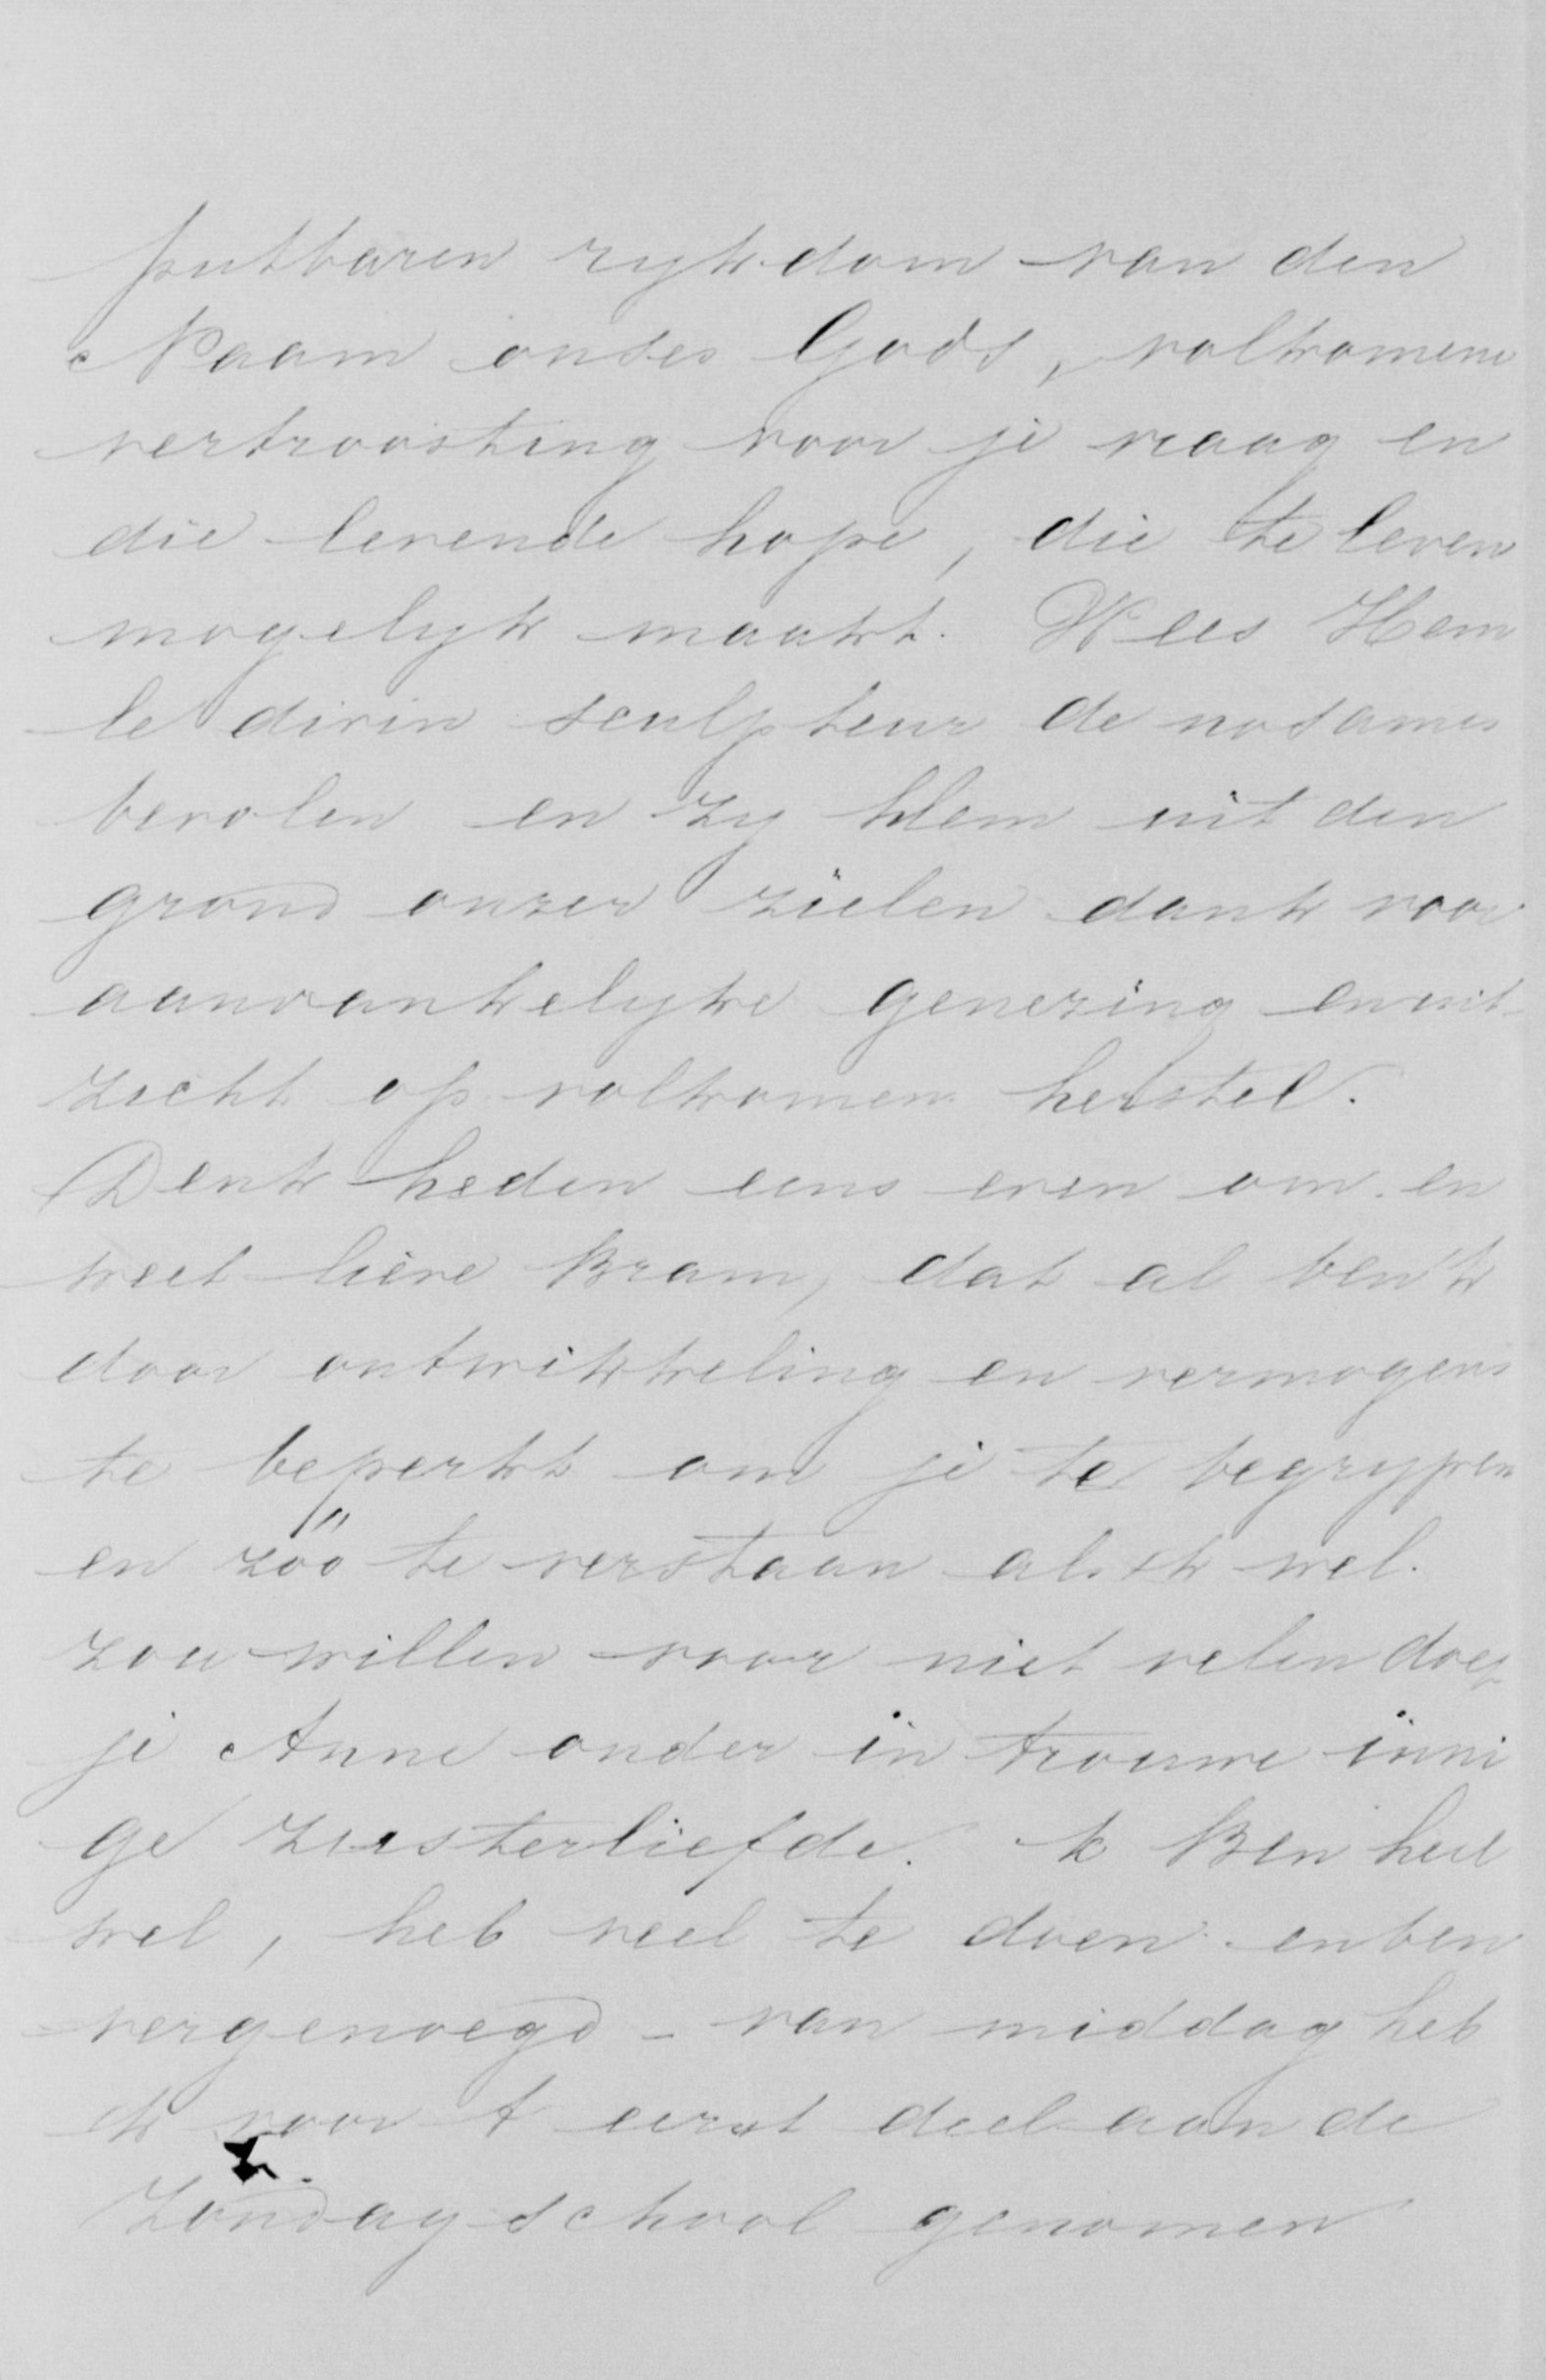 putbaren rykdom van den
Naam onses Gods, volkomene
vertroosting voor je vraag en
die levende hope, die te leven
mogelyk maakt. Wees Hem
le divin sculpteur de nos ames
bevolen en zy Hem uit den
grond onzer zielen dank voor
aanvankelyke genezing en uit-
zicht op volkomen herstel.
Denk heden eens even om en
weet lieve Bram, dat al ben 'k
door ontwikkeling en vermogens
te beperkt om je te begrypen
en zóó te verstaan als ik wel
zou willen voor niet velen doet
je Anne onder in trouwe inni
ge zusterliefde. k Ben heel
wel, heb veel te doen en ben
vergenoegd - van middag heb
ik voor t eerst deel aan de
Zondagschool genomen